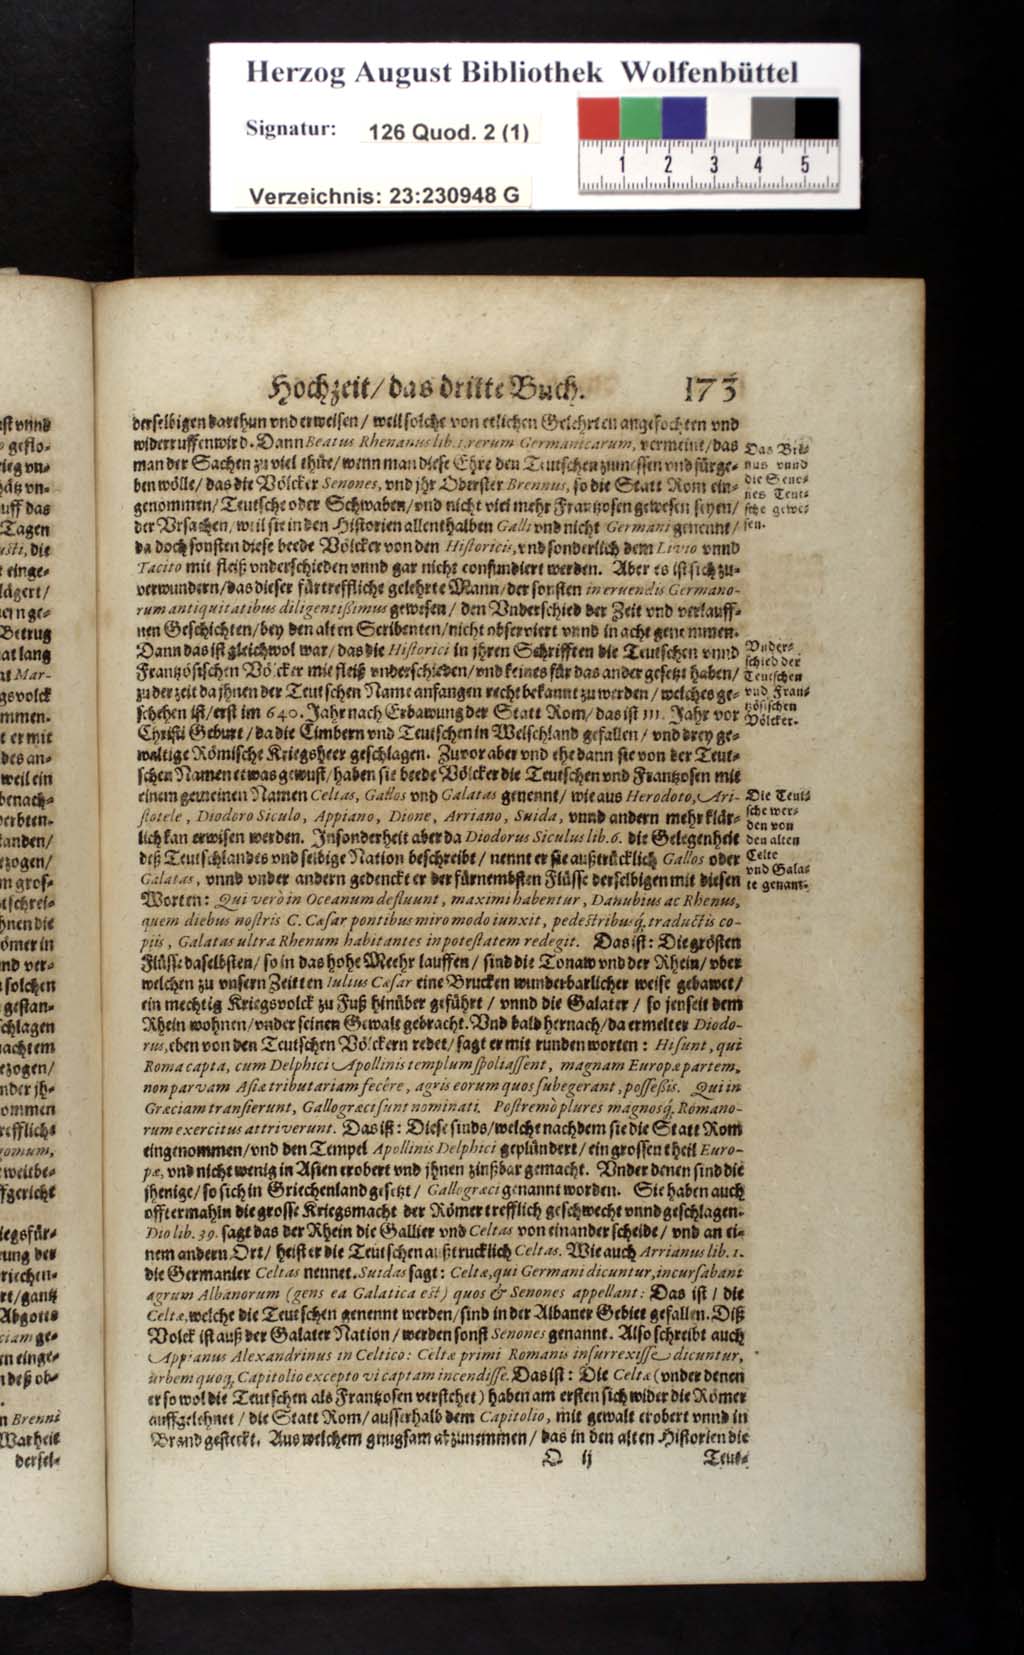 Herzog August Bibliothek Wolfenbüttel
Signatur: 126 Quod. 2 (1)
Verzeichnis: 23:230948 G
1 2 3 4 5
Hochzeit/ das dritte Buch. 173
derselbigen darthun vnd erweisen/ weil solche von etlichen Gelehrten angefochten vnd
widerruffen wird. Dann Beatus Rhenanus lib. 1. rerum Germanicarum, vermeint/ das
man der Sachen zu viel thüe/ wenn man diese Ehre den Teutschen zumessen vnd fürge-
ben wölle/ das die Völcker Senones, vnd jhr Oberster Brennus, so die Statt Rom ein-
genommen/ Teutsche oder Schwaben/ vnd nicht viel mehr Frantzosen gewesen seyen/
der Vrsachen/ weil sie in den Historien allenthalben Galli vnd nicht Germani genennt/
da doch sonsten diese beede Völcker von den Historicis, vnd sonderlich dem Livio vnnd
Tacito mit fleiß vnderschieden vnnd gar nicht confundiert werden. Aber es ist sich zu-
verwundern/ das dieser fürtreffliche gelehrte Mann/ der sonsten in eruendis Germano-
rum antiquitatibus diligentißimus gewesen/ den Vnderschied der Zeit vnd verlauff-
nen Geschichten/ bey den alten Scribenten/ nicht observiert vnnd in acht genommen.
Dann das ist gleichwol war/ das die Historici in jhren Schrifften die Teutschen vnnd
Frantzösischen Völcker mit fleiß vnderschieden/ vnd keines für das ander gesetzt haben/
zu der zeit da jhnen der Teutschen Name anfangen recht bekannt zu werden/ welches ge-
schehen ist/ erst im 640. Jahr nach Erbawung der Statt Rom/ das ist 111. Jahr vor
Christi Geburt/ da die Cimbern vnd Teutschen in Welschland gefallen/ vnd drey ge-
waltige Römische Kriegsheer geschlagen. Zuvor aber vnd ehe dann sie von der Teut-
schen Namen etwas gewust/ haben sie beede Völcker die Teutschen vnd Frantzosen mit
einem gemeinen Namen Celtas, Gallos vnd Galatas genennt/ wie aus Herodoto, Ari-
stotele, Diodoro Siculo, Appiano, Dione, Arriano, Suida, vnnd andern mehr klär-
lich kan erwisen werden. Insonderheit aber da Diodorus Siculus lib. 6. die Gelegenheit
deß Teutschlandes vnd selbige Nation beschreibt/ nennt er sie außtrücklich Gallos oder
Galatas, vnnd vnder andern gedenckt er der fürnembsten Flüsse derselbigen mit diesen
Worten: Qui verò in Oceanum defluunt, maximi habentur, Danubius ac Rhenus,
quem diebus nostris C. Cæsar pontibus miro modo iunxit, pedestribusq́, traductis co-
piis, Galatas ultra Rhenum habitantes in potestatem redegit. Das ist: Die grösten
Flüsse daselbsten/ so in das hohe Meehr lauffen/ sind die Tonaw vnd der Rhein/ vber
welchen zu vnsern Zeitten Iulius Cæsar eine Brucken wunderbarlicher weise gebawet/
ein mechtig Kriegsvolck zu Fuß hinüber geführt/ vnnd die Galater/ so jenseit dem
Rhein wohnen/ vnder seinen Gewalt gebracht. Vnd bald hernach/ da ermelter Diodo-
rus, eben von den Teutschen Völckern redet/ sagt er mit runden worten: Hi sunt, qui
Roma capta, cum Delphici Apollinis templum spoliassent, magnam Europæ partem,
non parvam Asiæ tributariam fecêre, agris eorum quos subegerant, possessis. Qui in
Græciam transierunt, Gallogræci sunt nominati. Postremò plures magnosq́, Romano-
rum exercitus attriverunt. Das ist: Diese sinds/ welche nachdem sie die Statt Rom
eingenommen/ vnd den Tempel Apollinis Delphici geplündert/ ein grossen theil Euro-
pæ, vnd nicht wenig in Asien erobert vnd jhnen zinßbar gemacht. Vnder denen sind die
jhenige/ so sich in Griechenland gesetzt/ Gallogræci genannt worden. Sie haben auch
offtermahln die grosse Kriegsmacht der Römer trefflich geschwecht vnnd geschlagen.
Dio lib. 39. sagt das der Rhein die Gallier vnd Celtas von einander scheide/ vnd an ei-
nem andern Ort/ heist er die Teutschen außtrucklich Celtas. Wie auch Arrianus lib. 1.
die Germanier Celtas nennet. Suidas sagt: Celtæ, qui Germani dicuntur, incursabant
agrum Albanorum (gens ea Galatica est) quos & Senones appellant: Das ist/ die
Celtæ, welche die Teutschen genennt werden/ sind in der Albaner Gebiet gefallen. Diß
Volck ist auß der Galater Nation/ werden sonst Senones genannt. Also schreibt auch
Appianus Alexandrinus in Celtico: Celtæ primi Romanis insurrexisse dicuntur,
urbem quoq, Capitolio excepto vi captam incendisse. Das ist: Die Celtæ (vnder denen
er so wol die Teutschen als Frantzosen verstehet) haben am ersten sich wider die Römer
auffgelehnet/ die Statt Rom/ ausserhalb dem Capitolio, mit gewalt erobert vnnd in
Brand gesteckt. Aus welchem gnugsam abzunemmen/ das in den alten Historien die
O ij Teut-
Das Bre-
nus vnnd
die Seno-
nes Teut-
sche gewe-
sen.
Vnder-
schied der
Teutschen
vnd Fran-
tzösischen
Völcker.
Die Teut-
sche wer-
den von
den alten
Celte
vnd Gala-
te genant.